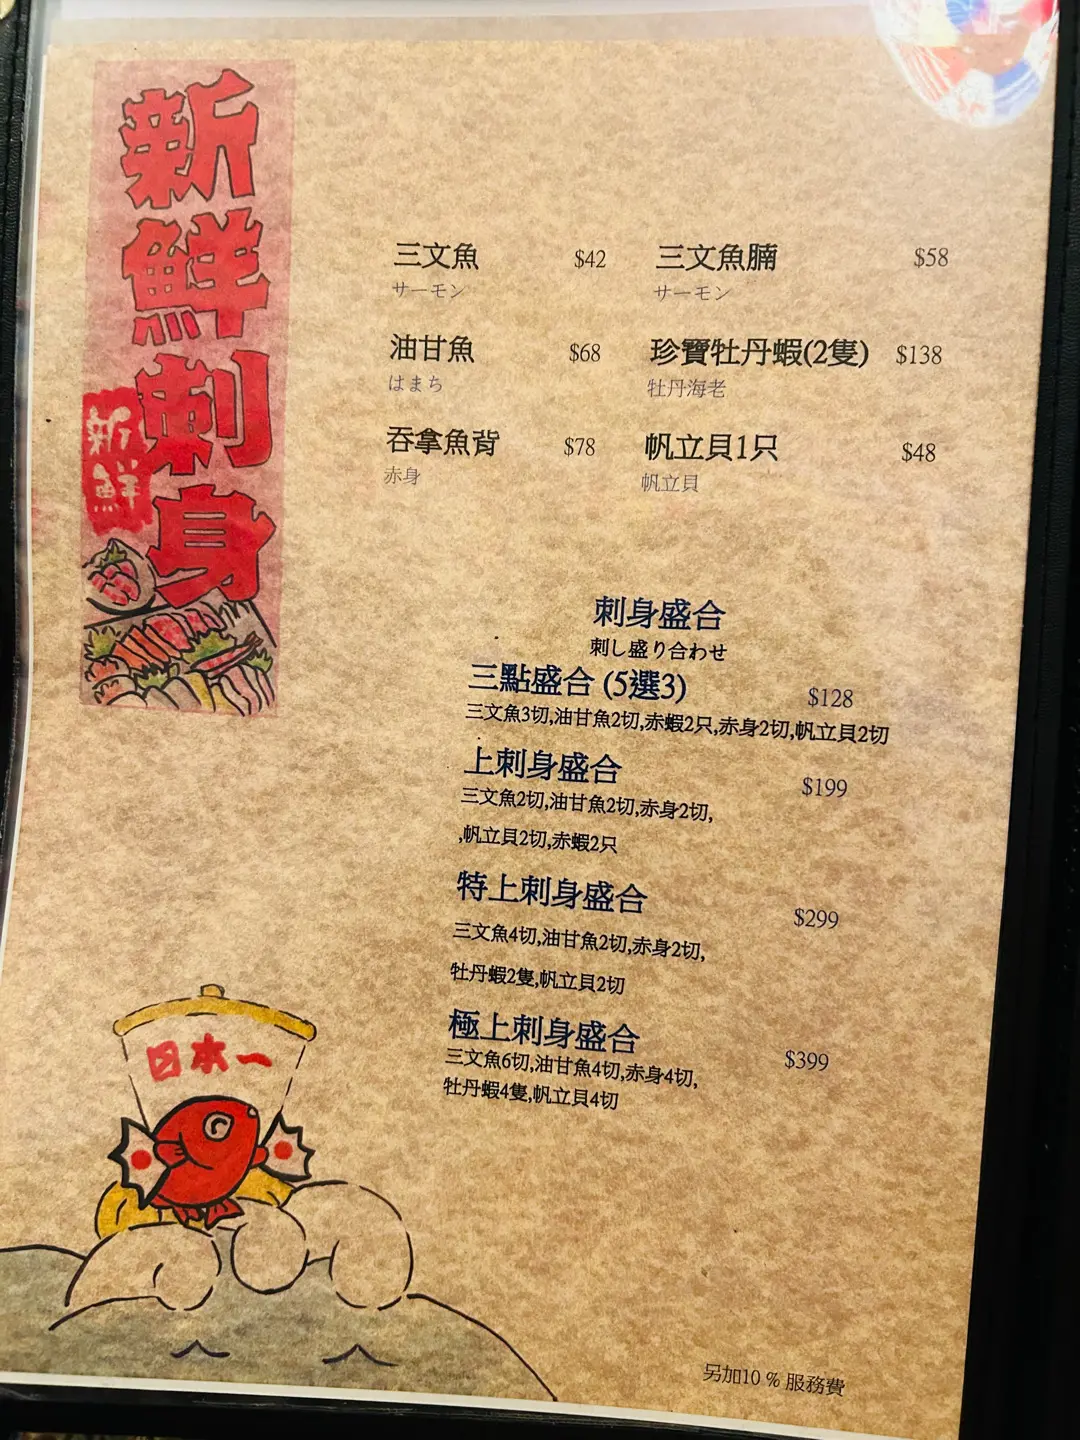 新鮮刺身
新鮮
三文魚 $42
サーモン
三文魚腩 $58
サーモン
油甘魚 $68
はまち
珍寶牡丹蝦(2隻) $138
牡丹海老
吞拿魚背 $78
赤身
帆立貝1只 $48
帆立貝
刺身盛合
刺し盛り合わせ
三點盛合 (5選3) $128
三文魚3切,油甘魚2切,赤蝦2只,赤身2切,帆立貝2切
上刺身盛合 $199
三文魚2切,油甘魚2切,赤身2切,
,帆立貝2切,赤蝦2只
特上刺身盛合 $299
三文魚4切,油甘魚2切,赤身2切,
牡丹蝦2隻,帆立貝2切
極上刺身盛合 $399
三文魚6切,油甘魚4切,赤身4切,
牡丹蝦4隻,帆立貝4切
日本一
另加10 % 服務費